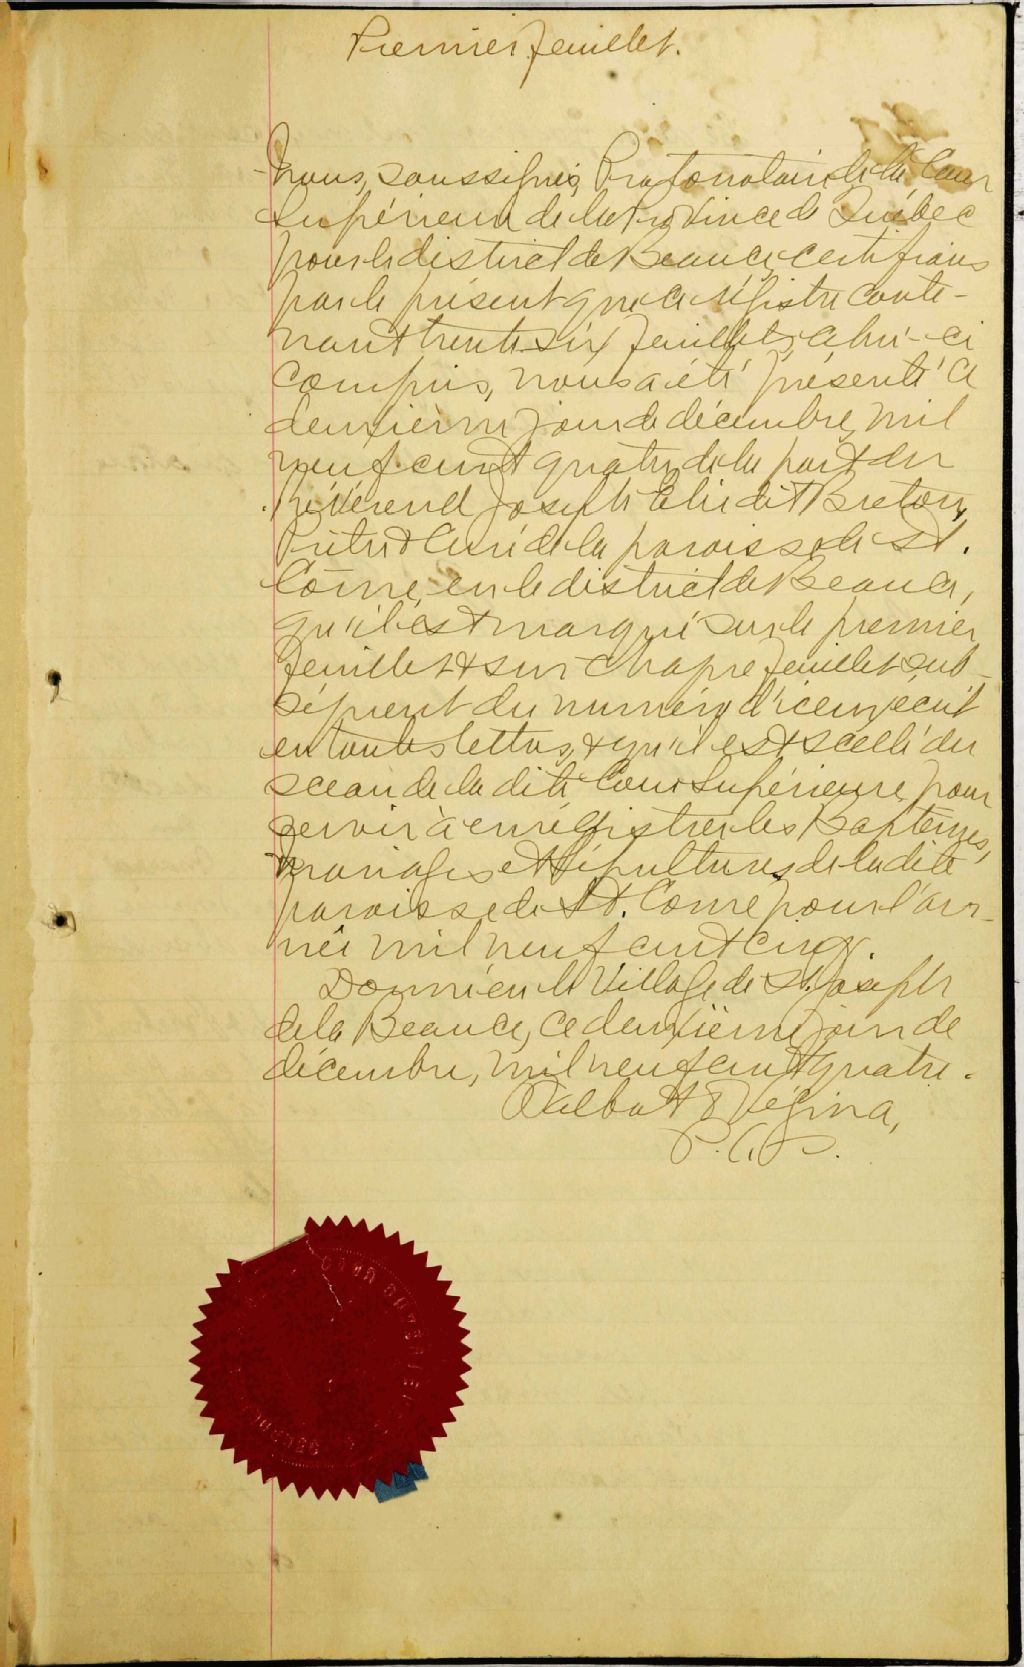 Premier feuillet.
Nous, soussigné, Protonotaire de la Cour
Supérieure de la Province de Québec
pour le district de Beauce, certifions
par le présent que ce régistre conte-
nant trente-six feuillets, celui-ci
compris, nous a été présenté ce
deuxième jour de décembre, mil
neuf cent quatre, de la part du
Révérend Joseph Elie dit Breton,
Prêtre & Curé de la paroisse de St.
Côme, en le district de Beauce,
qu'il est marqué sur le premier
feuillet & sur chaque feuillet sub-
séquent du numéro d'icelui écrit
en toutes lettres, & qu'il est scellé du
sceau de la dite Cour Supérieure, pour
servir à enrégistrer les Baptêmes,
Mariages et Sépultures de la dite
paroisse de St. Come, pour l'an-
née mil neuf cent cinq.
Donné en le Village de St. Joseph
de la Beauce, ce deuxième jour de
décembre, mil neuf cent quatre.
Talbot & Vézina,
P. C. S.
COUR SUPERIEURE
BEAUCE